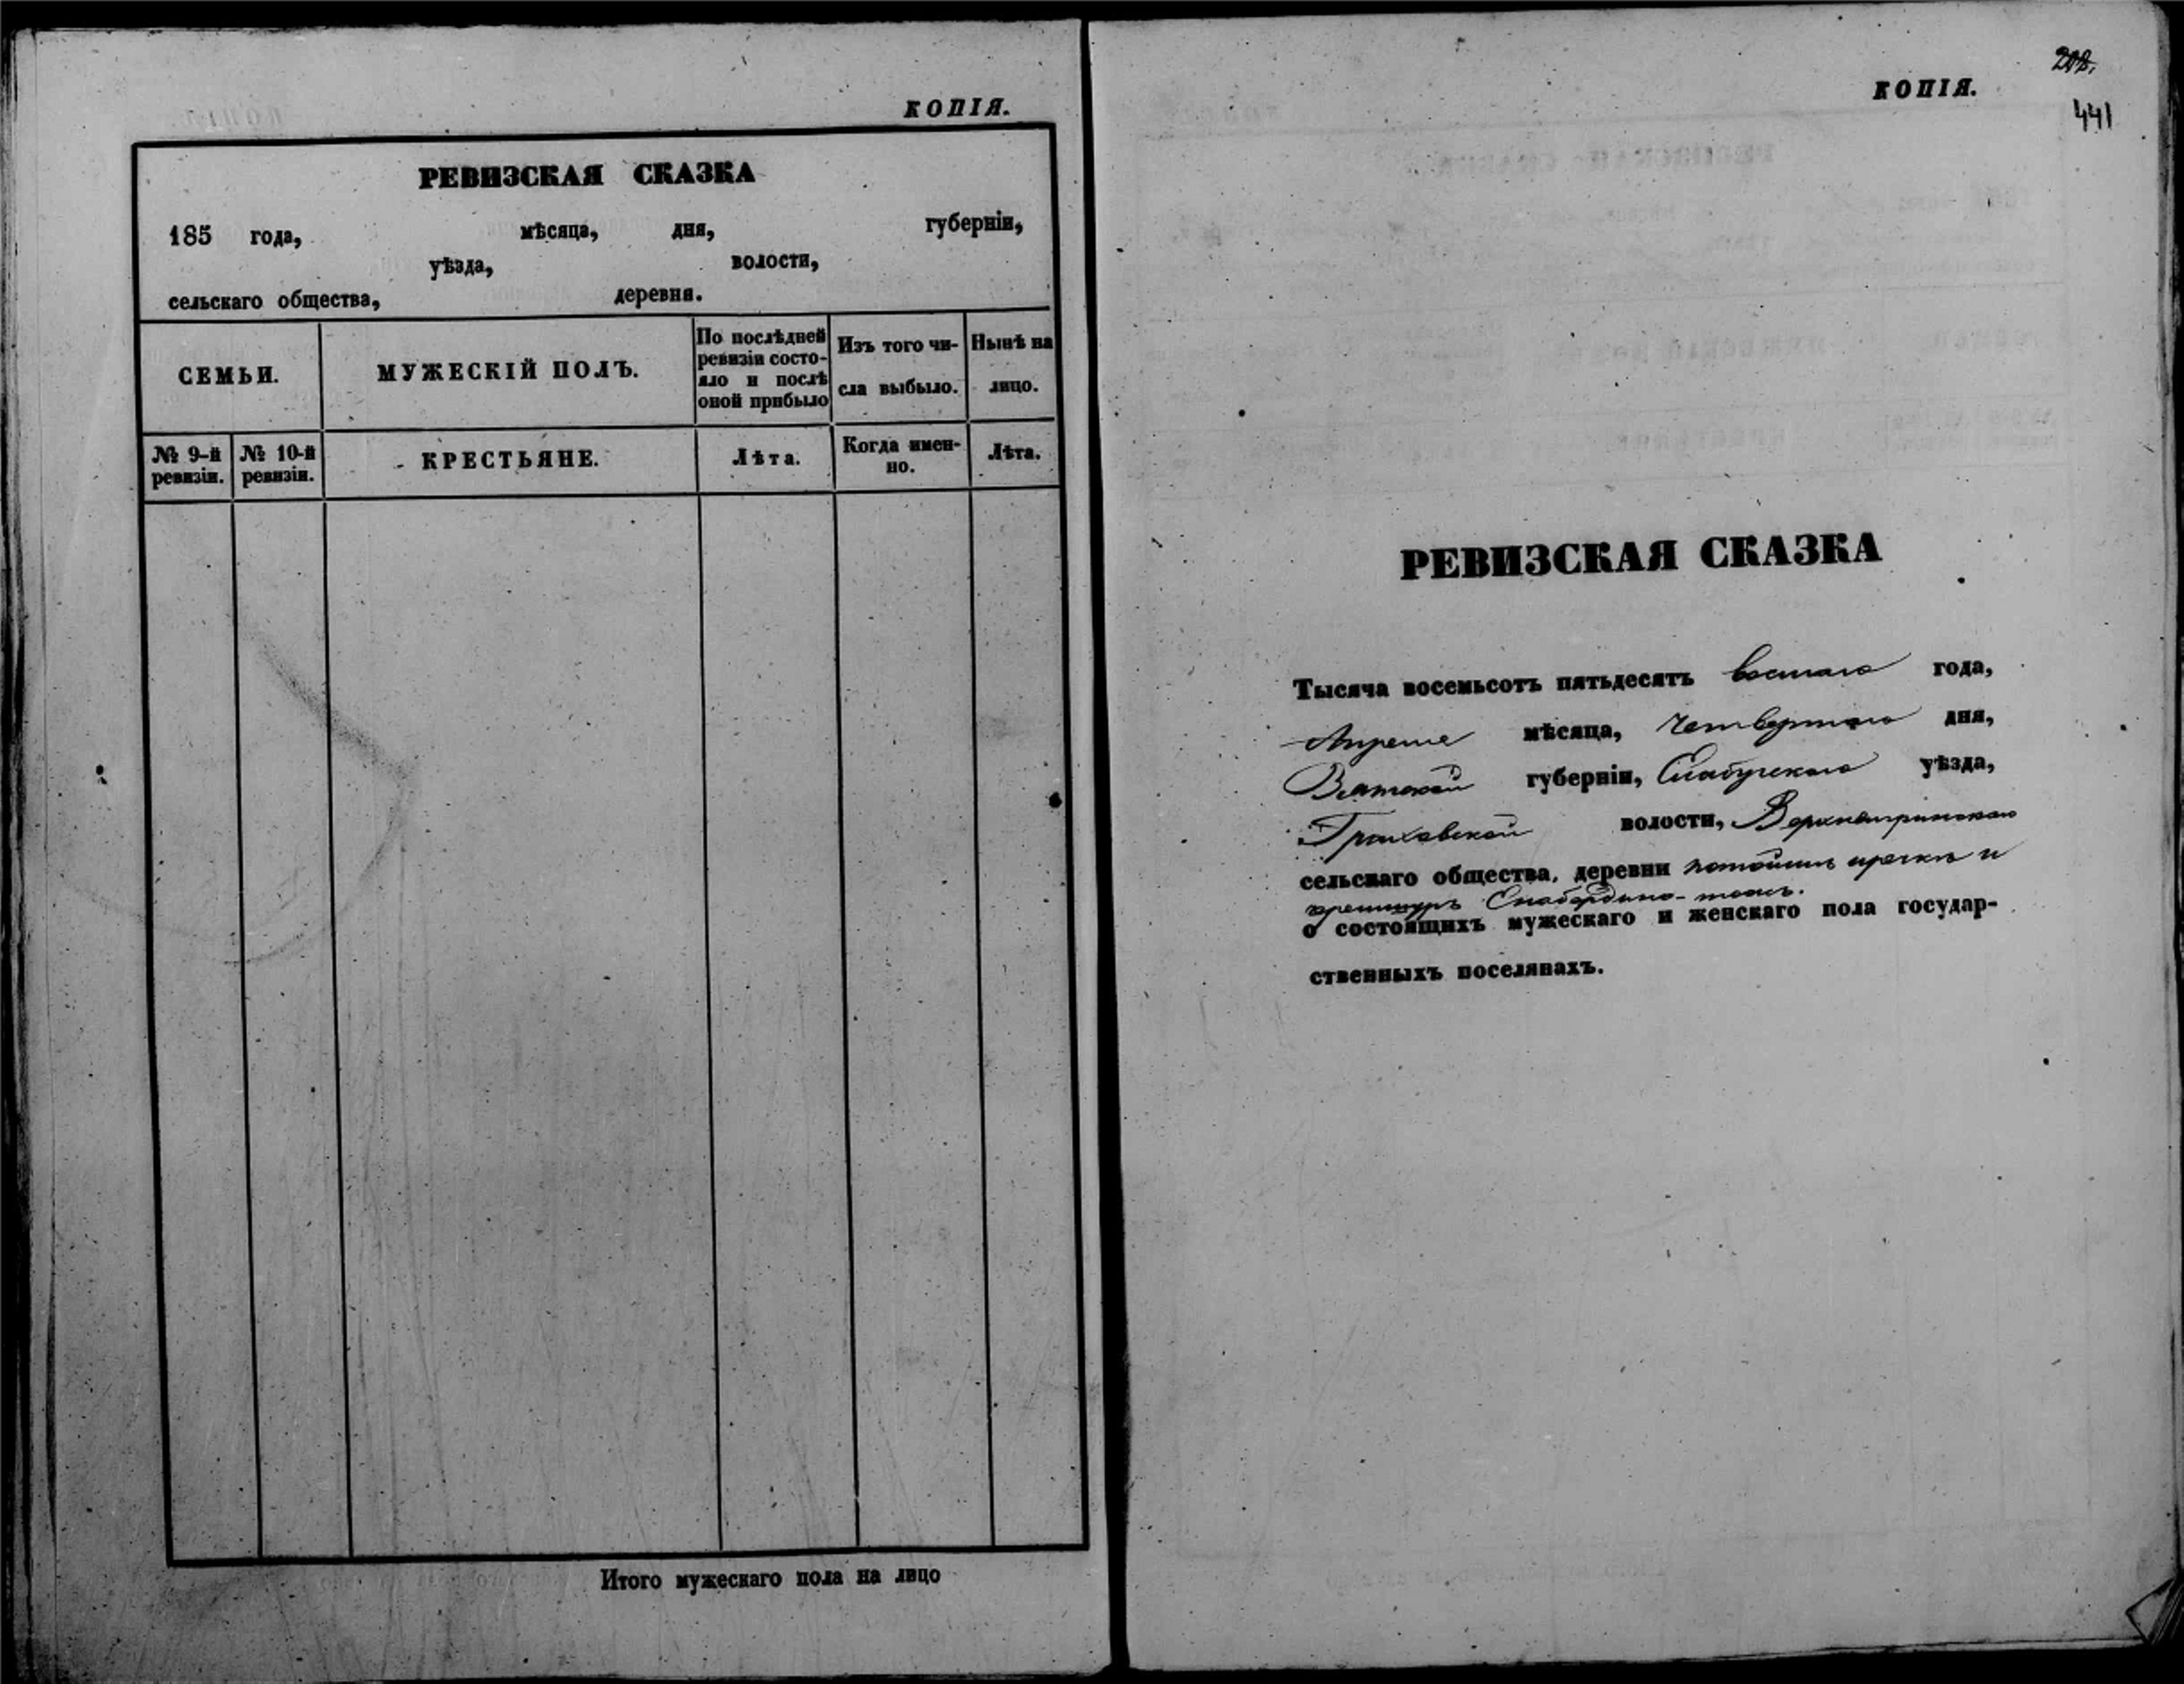 КОПІЯ.
РЕВИЗСКАЯ СКАЗКА
185 года, мѣсяца, дня, губерніи,
уѣзда, волости,
сельскаго общества, деревня.
СЕМЬИ.
МУЖЕСКІЙ ПОЛЪ.
По послѣдней
ревизіи состо-
яло и послѣ
оной прибыло
Изъ того чи-
сла выбыло.
Нынѣ на
лицо.
№ 9-й
ревизіи.
№ 10-й
ревизіи.
КРЕСТЬЯНЕ.
Лѣта.
Когда имен-
но.
Лѣта.
Итого мужескаго пола на лицо
КОПІЯ.
441
РЕВИЗСКАЯ СКАЗКА
Тысяча восемьсотъ пятьдесятъ восмаго года,
Апреля мѣсяца, Четвертаго дня,
Вятской губерніи, Елабугскаго уѣзда,
Граховской волости,
сельскаго общества, деревни
о состоящихъ мужескаго и женскаго пола государ-
ственныхъ поселянахъ.